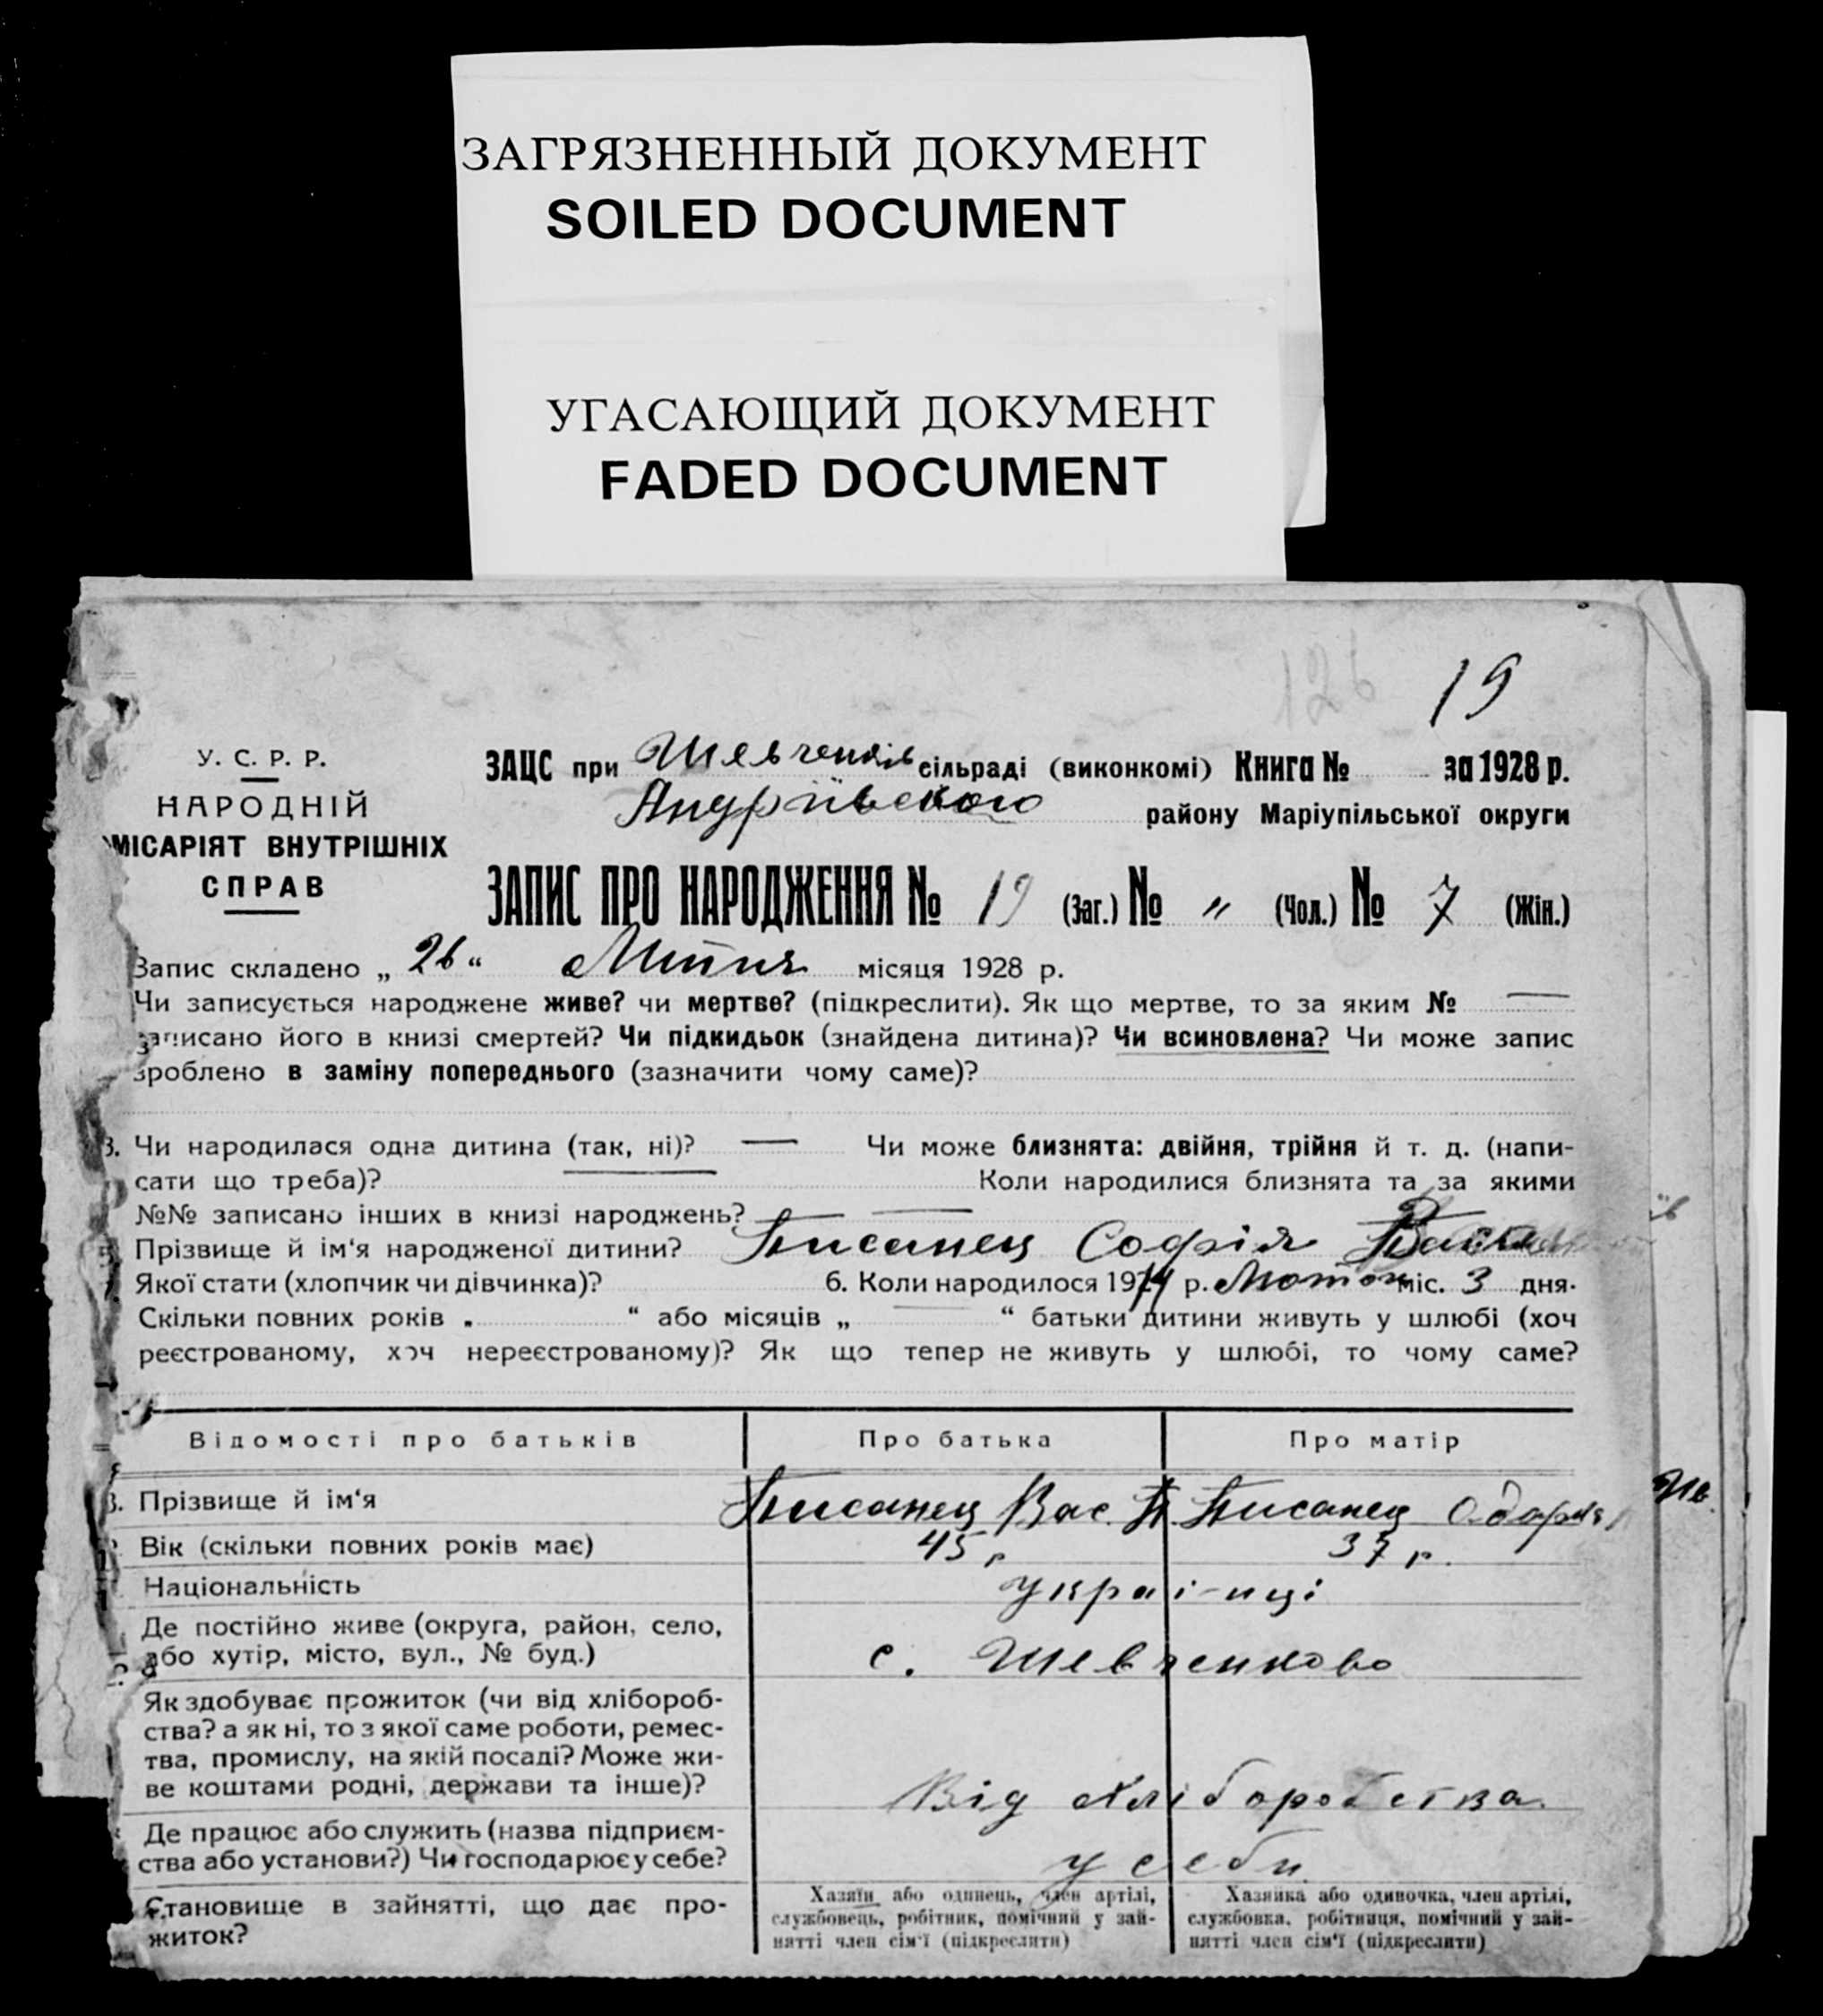 ЗАГРЯЗНЕННЫЙ ДОКУМЕНТ
SOILED DOCUMENT
УГАСАЮЩИЙ ДОКУМЕНТ
FADED DOCUMENT
126 19
У. С. Р. Р.
НАРОДНІЙ
МІСАРІЯТ ВНУТРІШНІХ
СПРАВ
ЗАЦС при Шевченків сільраді (виконкомі) Книга № за 1928 р.
Андріївського району Маріупільської округи
ЗАПИС ПРО НАРОДЖЕННЯ № 19 (Заг.) № " (Чол.) № 7 (Жін.)
Запис складено „ 26 “ місяця 1928 р.
Чи записується народжене живе? чи мертве? (підкреслити). Як що мертве, то за яким № —
записано його в книзі смертей? Чи підкидьок (знайдена дитина)? Чи всиновлена? Чи може запис
зроблено в заміну попереднього (зазначити чому саме)?
3. Чи народилася одна дитина (так, ні)? — Чи може близнята: двійня, трійня й т. д. (напи-
сати що треба)? Коли народилися близнята та за якими
№№ записано інших в книзі народжень? —
Прізвище й ім'я народженої дитини? Писанец Софія
Якої стати (хлопчик чи дівчинка)? 6. Коли народилося 19 р. міс. 3 дня.
Скільки повних років „ “ або місяців „ “ батьки дитини живуть у шлюбі (хоч
реєстрованому, хоч нереєстрованому)? Як що тепер не живуть у шлюбі, то чому саме?
Відомості про батьків Про батька Про матір
Прізвище й ім'я Писанец Вас. П. Писанец Одарка
Вік (скільки повних років має) 45 р 37 р.
Національність украі-нці
Де постійно живе (округа, район, село,
або хутір, місто, вул., № буд.) с. Шевченково
Як здобуває прожиток (чи від хлібороб-
ства? а як ні, то з якої саме роботи, ремес-
тва, промислу, на якій посаді? Може жи-
ве коштами родні, держави та інше)? Від хліборобства
Де працює або служить (назва підприєм-
ства або установи?) Чи господарює у себе? у себи
Становище в зайнятті, що дає про-
житок?
Хазяїн або одинець, член артілі,
службовець, робітник, помічний у зай-
нятті член сім'ї (підкреслити)
Хазяйка або одиночка, член артілі,
службовка, робітниця, помічний у зай-
нятті член сім'ї (підкреслити)